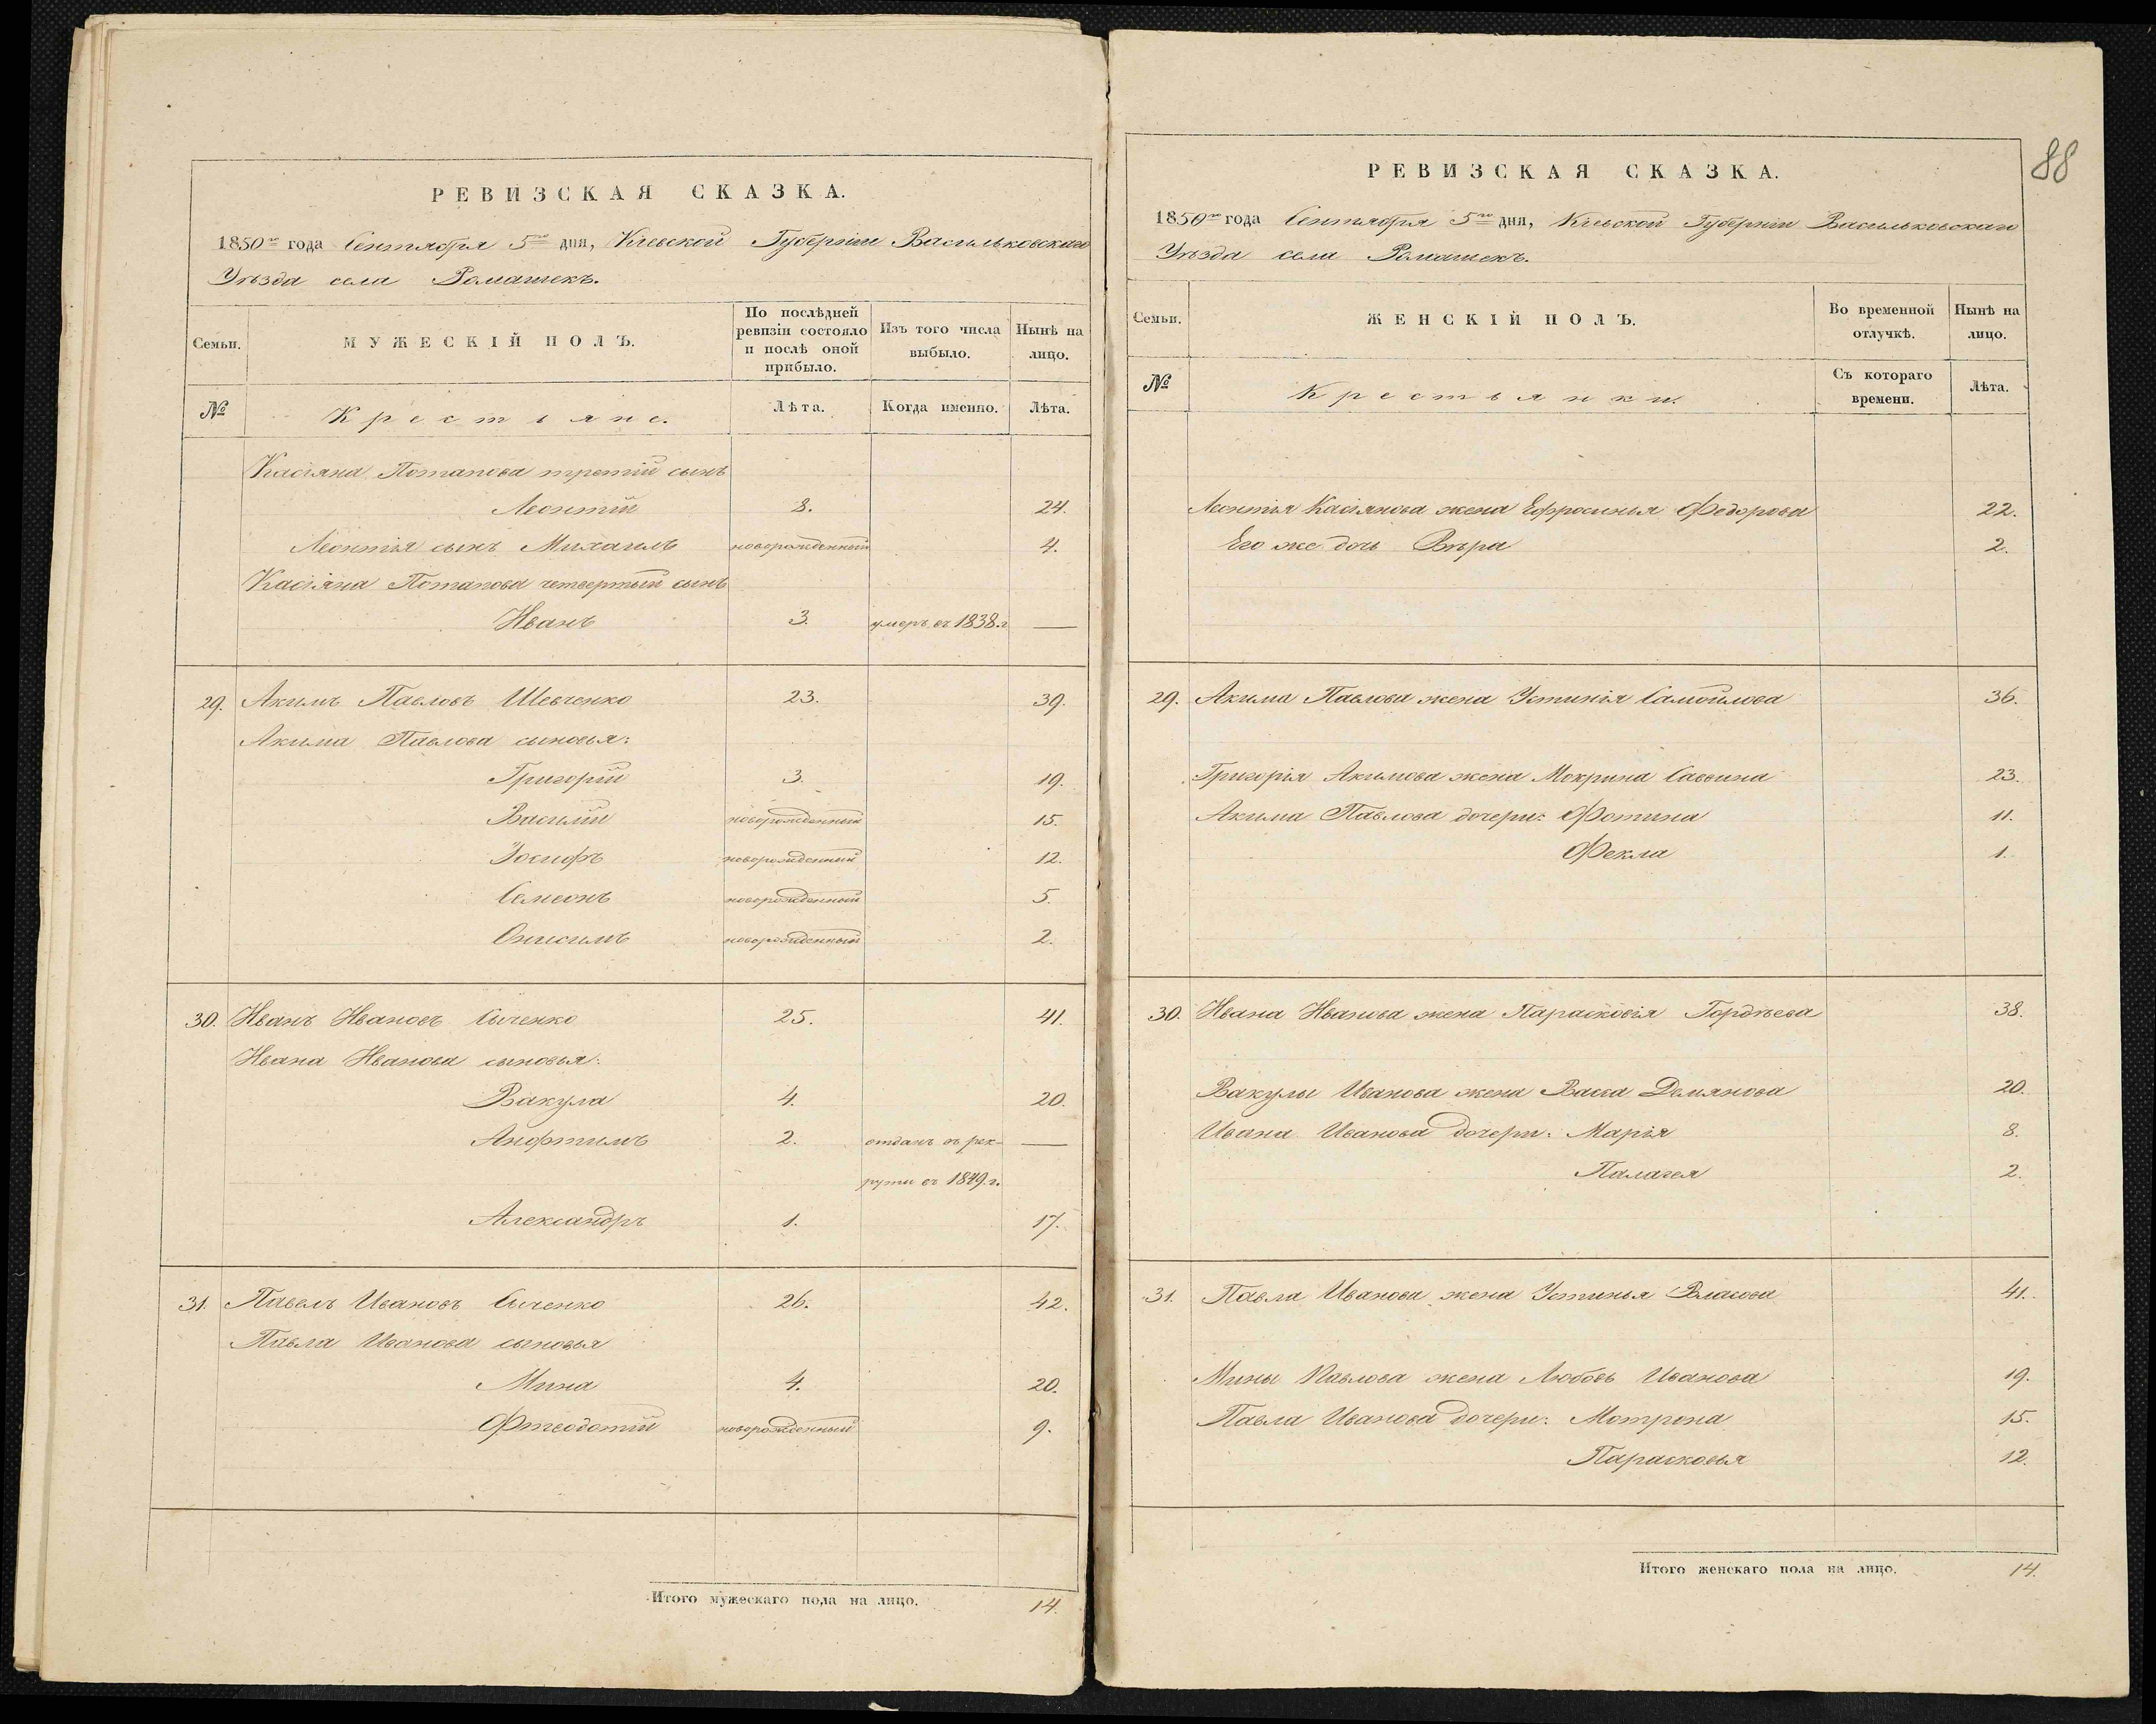 РЕВИЗСКАЯ СКАЗКА.
1850го года Сентября 5го дня, Кіевской Губерніи Васильковскаго
Уѣзда села Ромашекъ.
Семьи.
МУЖЕСКІЙ ПОЛЪ.
По послѣдней ревизіи состояло и послѣ оной прибыло.
Изъ того числа выбыло.
Нынѣ на лицо.
№
Крестьяне.
Лѣта.
Когда именно.
Лѣта.
Касіяна Потапова третій сынъ
Леонтій 8. 24.
Леонтія сынъ Михаилъ новорожденный 4.
Касіяна Потапова четвертый сынъ
Иванъ 3. умеръ въ 1838.г —
29. Акимъ Павловъ Шевченко 23. 39.
Акима Павлова сыновья:
Григорій 3. 19.
Василій новорожденный 15.
Іосифъ новорожденный 12.
Семеонъ новорожденный 5.
Онисимъ новорожденный 2.
30. Иванъ Ивановъ Сыченко 25. 41.
Ивана Иванова сыновья:
Вакула 4. 20.
Анфтимъ 2. отданъ въ рек- —
руты въ 1849.г.
Александръ 1. 17.
31. Павелъ Ивановъ Сыченко 26. 42.
Павла Иванова сыновья
Мина 4. 20.
новорожденный 9.
Итого мужескаго пола на лицо. 14.
88
РЕВИЗСКАЯ СКАЗКА.
1850го года Сентября 5го дня, Кіевской Губерніи Васильковскаго
Уѣзда села Ромашекъ.
Семьи.
ЖЕНСКІЙ ПОЛЪ.
Во временной отлучкѣ.
Нынѣ на лицо.
№
Крестьянки.
Съ котораго времени.
Лѣта.
Леонтія Касіянова жена Ефросинья Федорова 22.
Его же дочь Вѣра 2.
29. Акима Павлова жена Устинія Самойлова 36.
Григорія Акимова жена Мокрина Саввина 23.
Акима Павлова дочери: Фотина 11.
Фекла 1.
30. Ивана Иванова жена Парасковія Гордѣева 38.
Вакулы Иванова жена Васса Демянова 20.
Ивана Иванова дочери: Марія 8.
Палагея 2.
31. Павла Иванова жена Устинья Власова 41.
Мины Павлова жена Любовь Иванова 19.
Павла Иванова дочери: Мотрона 15.
Парасковья 12.
Итого женскаго пола на лицо. 14.